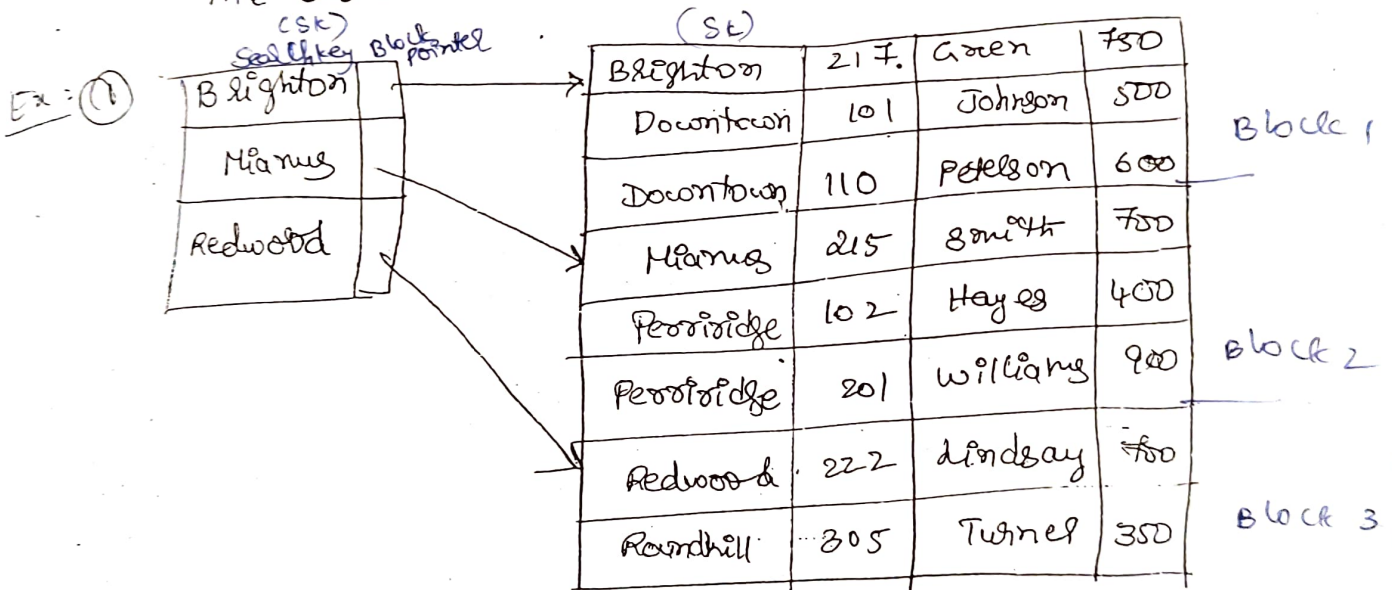 (SK)
Search key Block pointer
(SK)
Ex: 1
Brighton
Mianus
Redwood
Brighton 217. Green 750
Downtown 101 Johnson 500
Block 1
Downtown 110 Peterson 600
Mianus 215 Smith 700
Perriridge 102 Hayes 400
Block 2
Perriridge 201 Williams 900
Redwood 222 Lindsay 700
Block 3
Roundhill 305 Turner 350